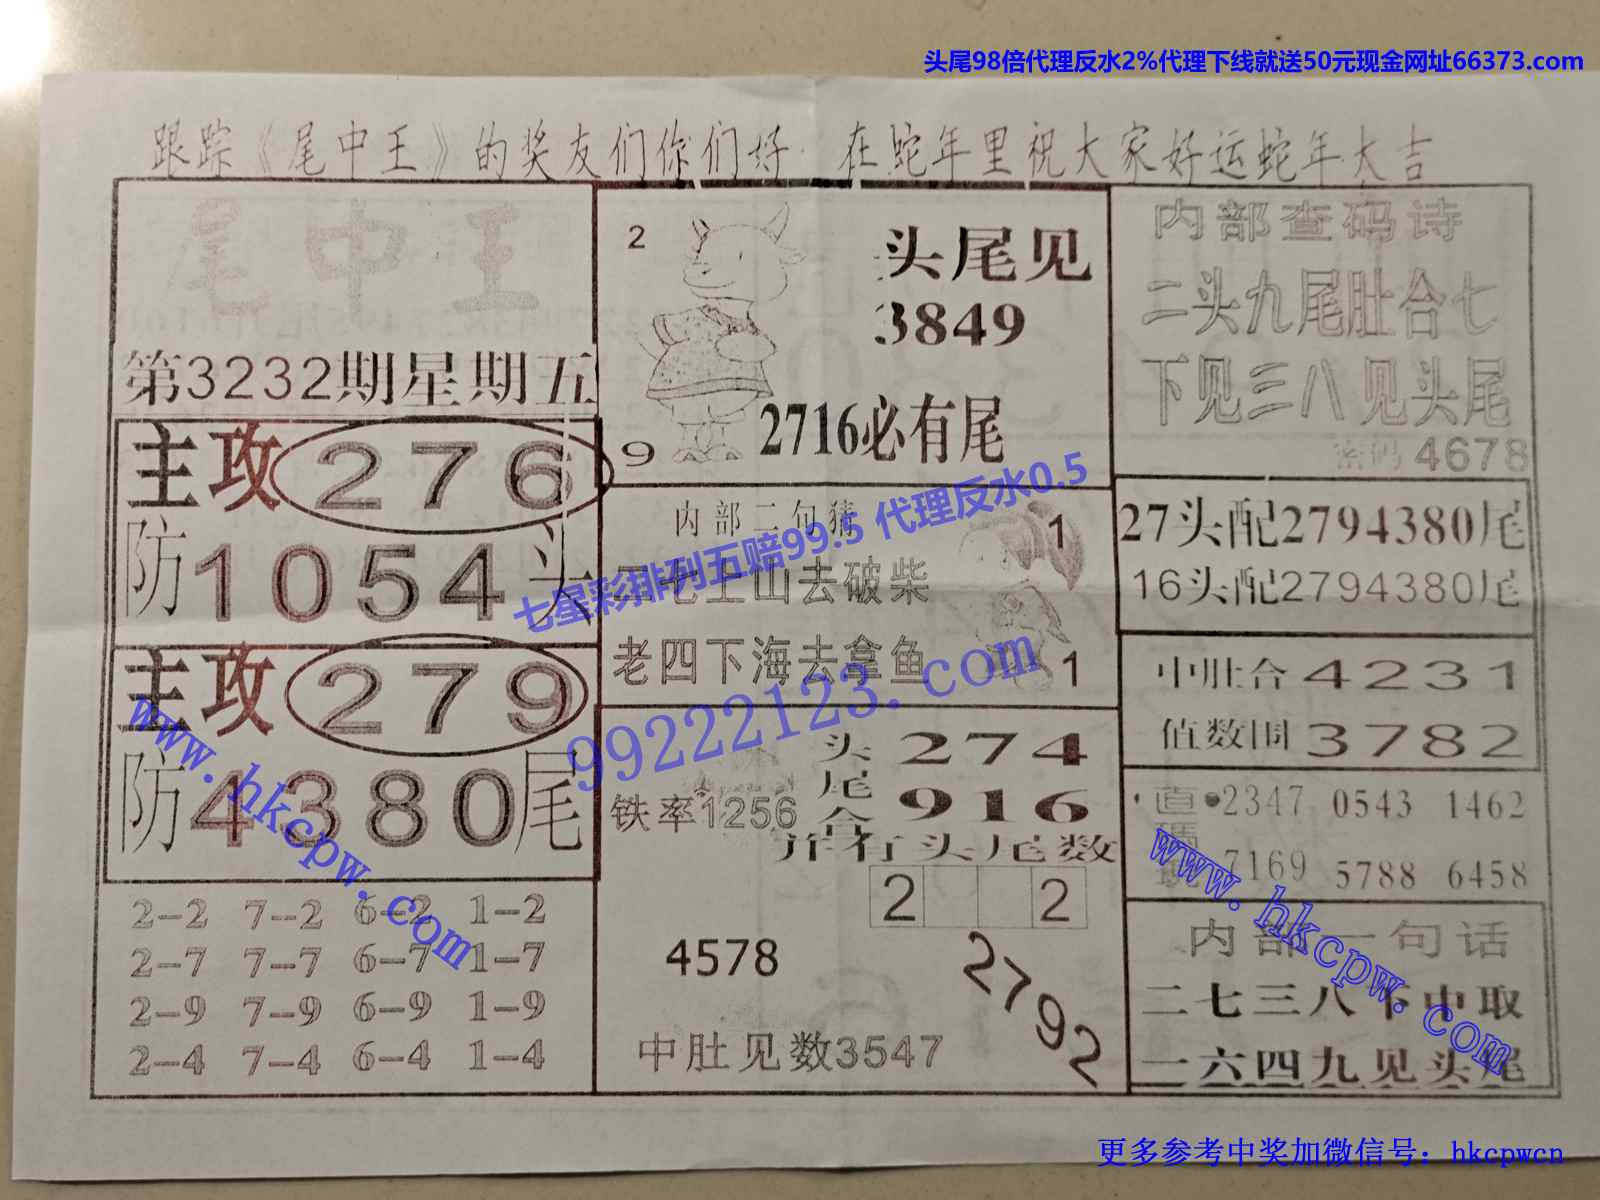 头尾98倍代理反水2%代理下线就送50元现金网址66373.com
跟踪《尾中王》的奖友们你们好 在蛇年里祝大家好运蛇年大吉
尾中王
第3232期星期五
主攻276
防1054头
主攻279
防4380尾
2-2 7-2 6-2 1-2
2-7 7-7 6-7 1-7
2-9 7-9 6-9 1-9
2-4 7-4 6-4 1-4
2
头尾见
3849
2716必有尾
9
内部二句猜
1
二七上山去破柴
老四下海去拿鱼
1
七星彩排列五赔99.5 代理反水0.5
99222123.com
头尾合
274
916
铁率1256
并有头尾数
2 2
4578
2792
中肚见数3547
内部查码诗
二头九尾肚合七
下见三八见头尾
密码4678
27头配2794380尾
16头配2794380尾
中肚合4231
值数围3782
直码
2347 0543 1462
7169 5788 6458
内部一句话
二七三八下中取
一六四九见头尾
www.hkcpw.com
www.hkcpw.com
更多参考中奖加微信号：hkcpwcn